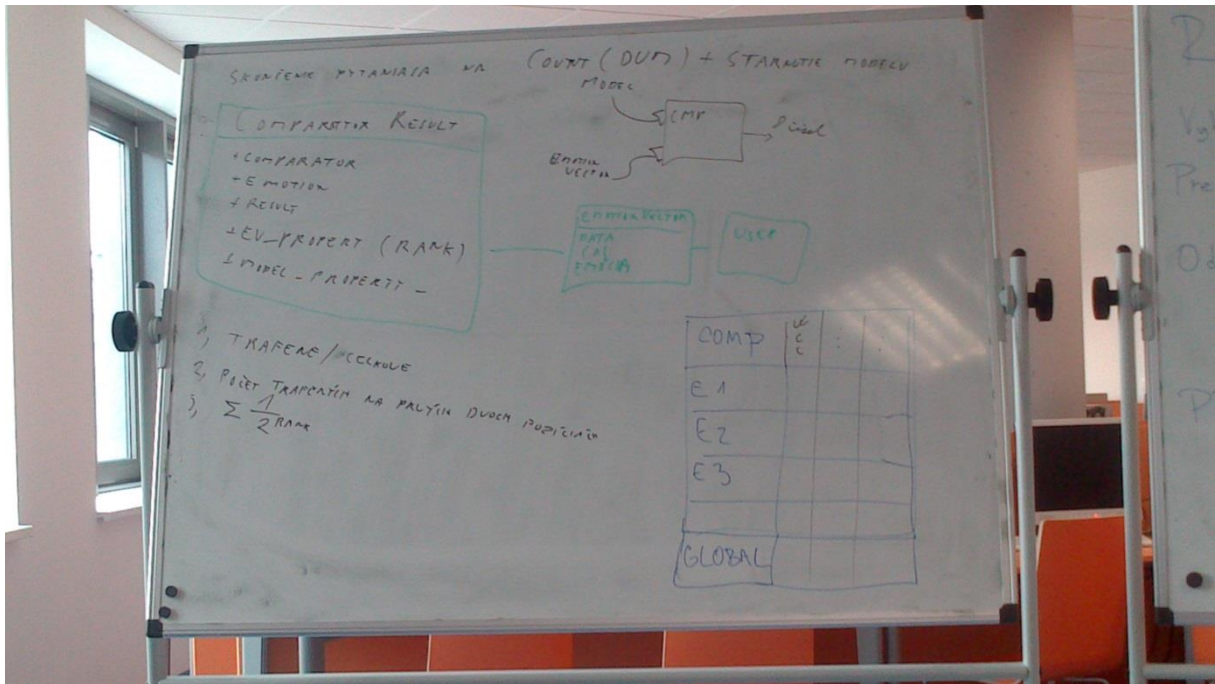 NA COUNT (DUM) + STARNUTIE MODELU
MODEL
CMP
EMOTION
VECTOR
COMPARATOR RESULT
+ COMPARATOR
+ EMOTION
+ RESULT
+ EV_PROPERT (RANK)
+ MODEL_PROPERTY_
EMOTION VECTOR
DATA
EMÓCIA
USER
1, TRAFENE/CELKOVE
2, POČET TRAFENÝCH NA PRVÝCH DVOCH POZÍCIÁCH
3, Σ 1/2^RANK
COMP
E1
E2
E3
GLOBAL